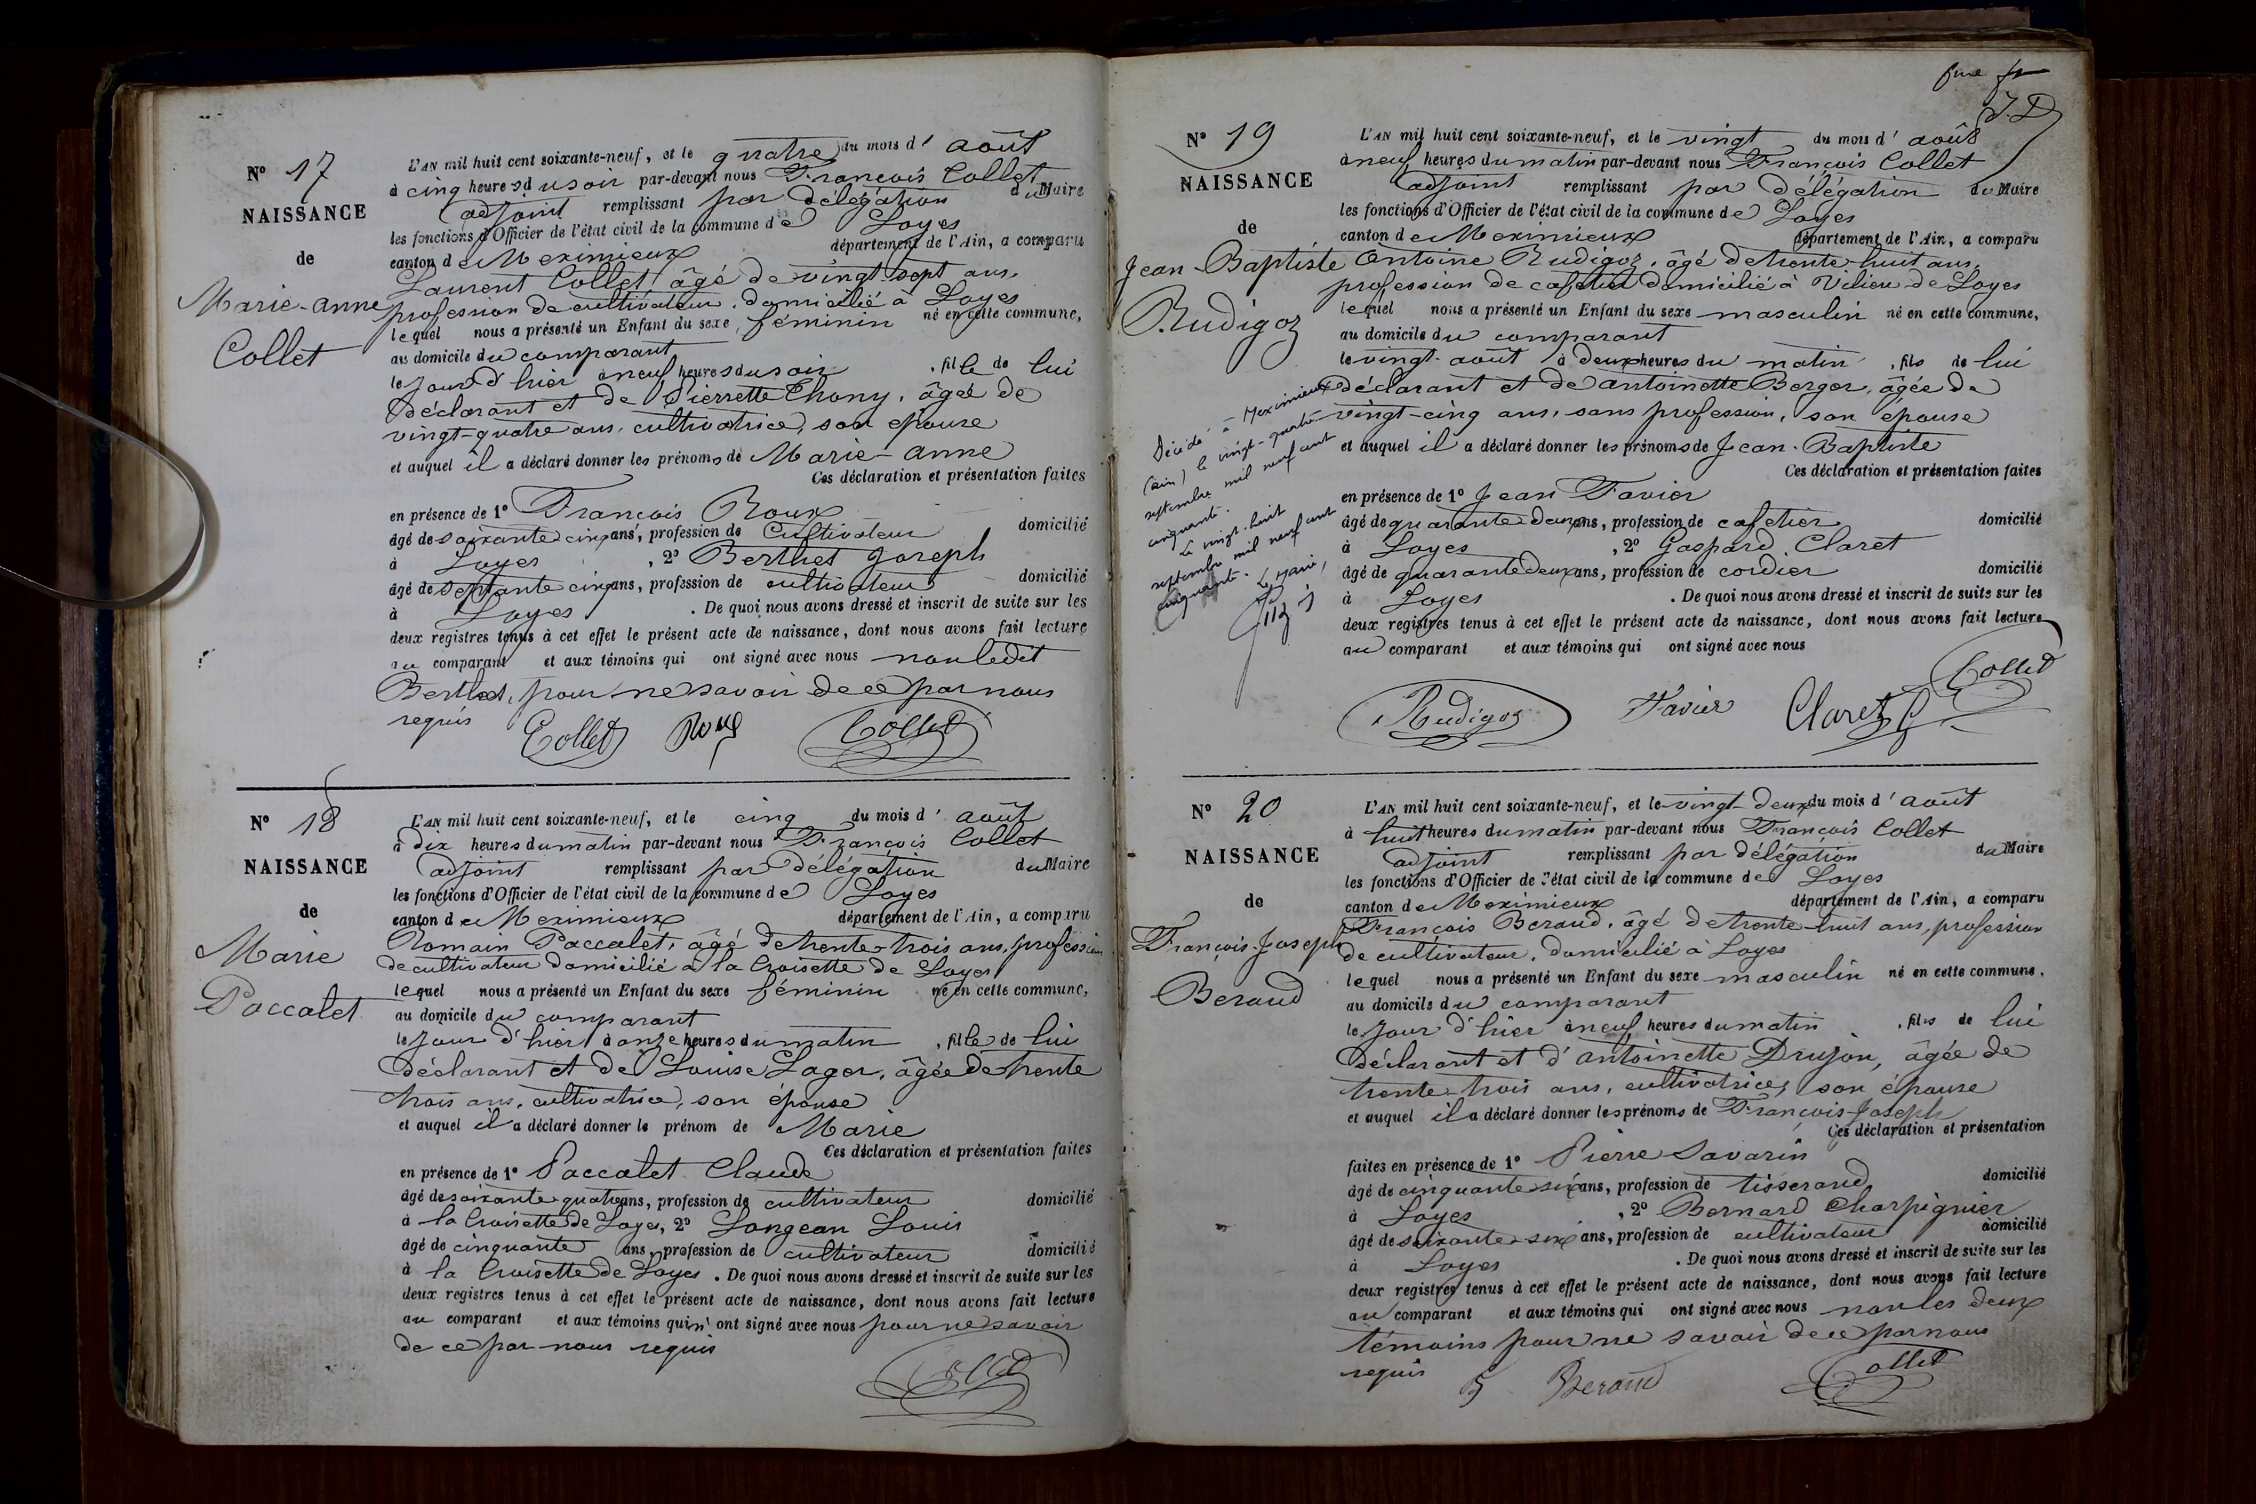 N° 17
NAISSANCE
de
Marie-anne
Collet
L'AN mil huit cent soixante-neuf, et le quatre du mois d'août
à cinq heures du soir par-devant nous François Collet
adjoint remplissant par délégation du Maire
les fonctions d'Officier de l'état civil de la commune de Loyes
canton de Meximieux département de l'Ain, a comparu
Laurent Collet âgé de vingt sept ans,
profession de cultivateur, domicilié à Loyes
lequel nous a présenté un Enfant du sexe féminin né en cette commune,
au domicile du comparant
le jour d'hier à neuf heures du soir, fille de lui
déclarant et de Pierrette Chony, âgée de
vingt-quatre ans, cultivatrice, son épouse
et auquel il a déclaré donner les prénoms de Marie-anne
Ces déclaration et présentation faites
en présence de 1° François Roux
âgé de soixante cinq ans, profession de Cultivateur domicilié
à Loyes, 2° Berthet Joseph
âgé de septante cinq ans, profession de cultivateur domicilié
à Loyes. De quoi nous avons dressé et inscrit de suite sur les
deux registres tenus à cet effet le présent acte de naissance, dont nous avons fait lecture
au comparant et aux témoins qui ont signé avec nous non ledit
Berthet, pour ne savoir de ce par nous
requis
Collet Roux Collet
N° 18
NAISSANCE
de
Marie
Paccalet
L'AN mil huit cent soixante-neuf, et le cinq du mois d'août
à dix heures du matin par-devant nous François Collet
adjoint remplissant par délégation du Maire
les fonctions d'Officier de l'état civil de la commune de Loyes
canton de Meximieux département de l'Ain, a comparu
Romain Paccalet, âgé de trente-trois ans, profession
de cultivateur domicilié à la Croisette de Loyes
lequel nous a présenté un Enfant du sexe féminin né en cette commune,
au domicile du comparant
le jour d'hier à onze heures du matin, fille de lui
déclarant et de Louise Lager, âgée de trente
trois ans, cultivatrice, son épouse
et auquel il a déclaré donner le prénom de Marie
Ces déclaration et présentation faites
en présence de 1° Paccalet Claude
âgé de soixante quatre ans, profession de cultivateur domicilié
à la Croisette de Loyes, 2° Longean Louis
âgé de cinquante ans, profession de cultivateur domicilié
à la Croisette de Loyes. De quoi nous avons dressé et inscrit de suite sur les
deux registres tenus à cet effet le présent acte de naissance, dont nous avons fait lecture
au comparant et aux témoins qui n'ont signé avec nous pour ne savoir
de ce par nous requis
Collet
N° 19
NAISSANCE
de
Jean-Baptiste
Rudigoz
Décédé à Meximieux
(ain) le vingt-quatre
septembre mil neuf cent
cinquante.
Le vingt-huit
septembre mil neuf cent
cinquante.
Le Maire,
L'AN mil huit cent soixante-neuf, et le vingt du mois d'août
à neuf heures du matin par-devant nous François Collet
adjoint remplissant par délégation du Maire
les fonctions d'Officier de l'état civil de la commune de Loyes
canton de Meximieux département de l'Ain, a comparu
Antoine Rudigoz, âgé de trente-huit ans,
profession de cafetier domicilié à Vilieu de Loyes
lequel nous a présenté un Enfant du sexe masculin né en cette commune,
au domicile du comparant
le vingt août à deux heures du matin, fils de lui
déclarant et de antoinette Berger, âgée de
vingt-cinq ans, sans profession, son épouse
et auquel il a déclaré donner les prénoms de Jean-Baptiste
Ces déclaration et présentation faites
en présence de 1° Jean Favier
âgé de quarante deux ans, profession de cafetier domicilié
à Loyes, 2° Gaspard Claret
âgé de quarante deux ans, profession de cordier domicilié
à Loyes. De quoi nous avons dressé et inscrit de suite sur les
deux registres tenus à cet effet le présent acte de naissance, dont nous avons fait lecture
au comparant et aux témoins qui ont signé avec nous
Rudigoz Favier Claret Collet
N° 20
NAISSANCE
de
François-Joseph
Beraud
L'AN mil huit cent soixante-neuf, et le vingt-deux du mois d'août
à huit heures du matin par-devant nous François Collet
adjoint remplissant par délégation du Maire
les fonctions d'Officier de l'état civil de la commune de Loyes
canton de Meximieux département de l'Ain, a comparu
François Beraud, âgé de trente-huit ans, profession
de cultivateur, domicilié à Loyes
lequel nous a présenté un Enfant du sexe masculin né en cette commune,
au domicile du comparant
le jour d'hier à neuf heures du matin, fils de lui
déclarant et d'antoinette Drujon, âgée de
trente-trois ans, cultivatrice, son épouse
et auquel il a déclaré donner les prénoms de François-Joseph
Ces déclaration et présentation
faites en présence de 1° Pierre Savarin
âgé de cinquante six ans, profession de tisserand domicilié
à Loyes, 2° Bernard Charpignier
âgé de soixante-six ans, profession de cultivateur domicilié
à Loyes. De quoi nous avons dressé et inscrit de suite sur les
deux registres tenus à cet effet le présent acte de naissance, dont nous avons fait lecture
au comparant et aux témoins qui ont signé avec nous non les deux
témoins pour ne savoir de ce par nous
requis
Beraud Collet